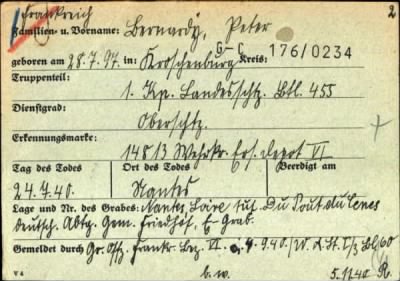 Frankreich 2
Familien- u. Vorname: Bernardy, Peter
G-C 176/0234
geboren am 28.7.97. in: Kroschenburg Kreis:
Truppenteil:
1. Kp. Landesschtz. Btl. 455
Dienstgrad:
Oberschtz.
Erkennungsmarke:
14813 Wehrkr. Ers. Depot VI
Tag des Todes Ort des Todes Beerdigt am
24.7.40. Nantes
Lage und Nr. des Grabes: Nantes Loire Du Pont du Cens
deutsch. Abtg. Gem. Friedhof, E Grab.
Gemeldet durch Gr. Offz. Frankr. Bez. VI. 9.40./W.A.St. I/3 Bl/60
V 4 b.w. 5.11.40 R.